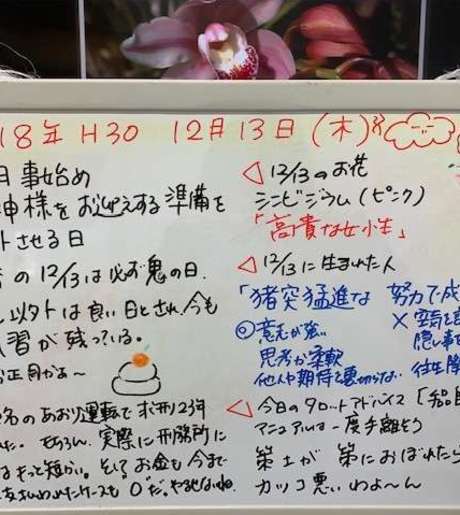 18年 H30 12月13日(木)
日 事始め
神様をお迎えする準備を
トさせる日
の12/13は必ず鬼の日.
以外は良い日とされ、今も
習が残っている。
お正月かよ〜
名のあおり運転で求刑23年
実際に刑務所に
はもっと短かい。そしてお金も今まで
ケースも0だ。やるせないね.
◁ 12/13のお花
シンビジウム(ピンク)
「高貴な女性」
◁ 12/13に生まれた人
「猪突猛進な 努力で成
◎意志が強い
思考が柔軟
他人や期待を裏切らない
× 空気を読
隠し事
往生際
◁ 今日のタロットアドバイス
マニュアルは一度手離そう
策士が策におぼれたら
カッコ悪いわよ〜ん